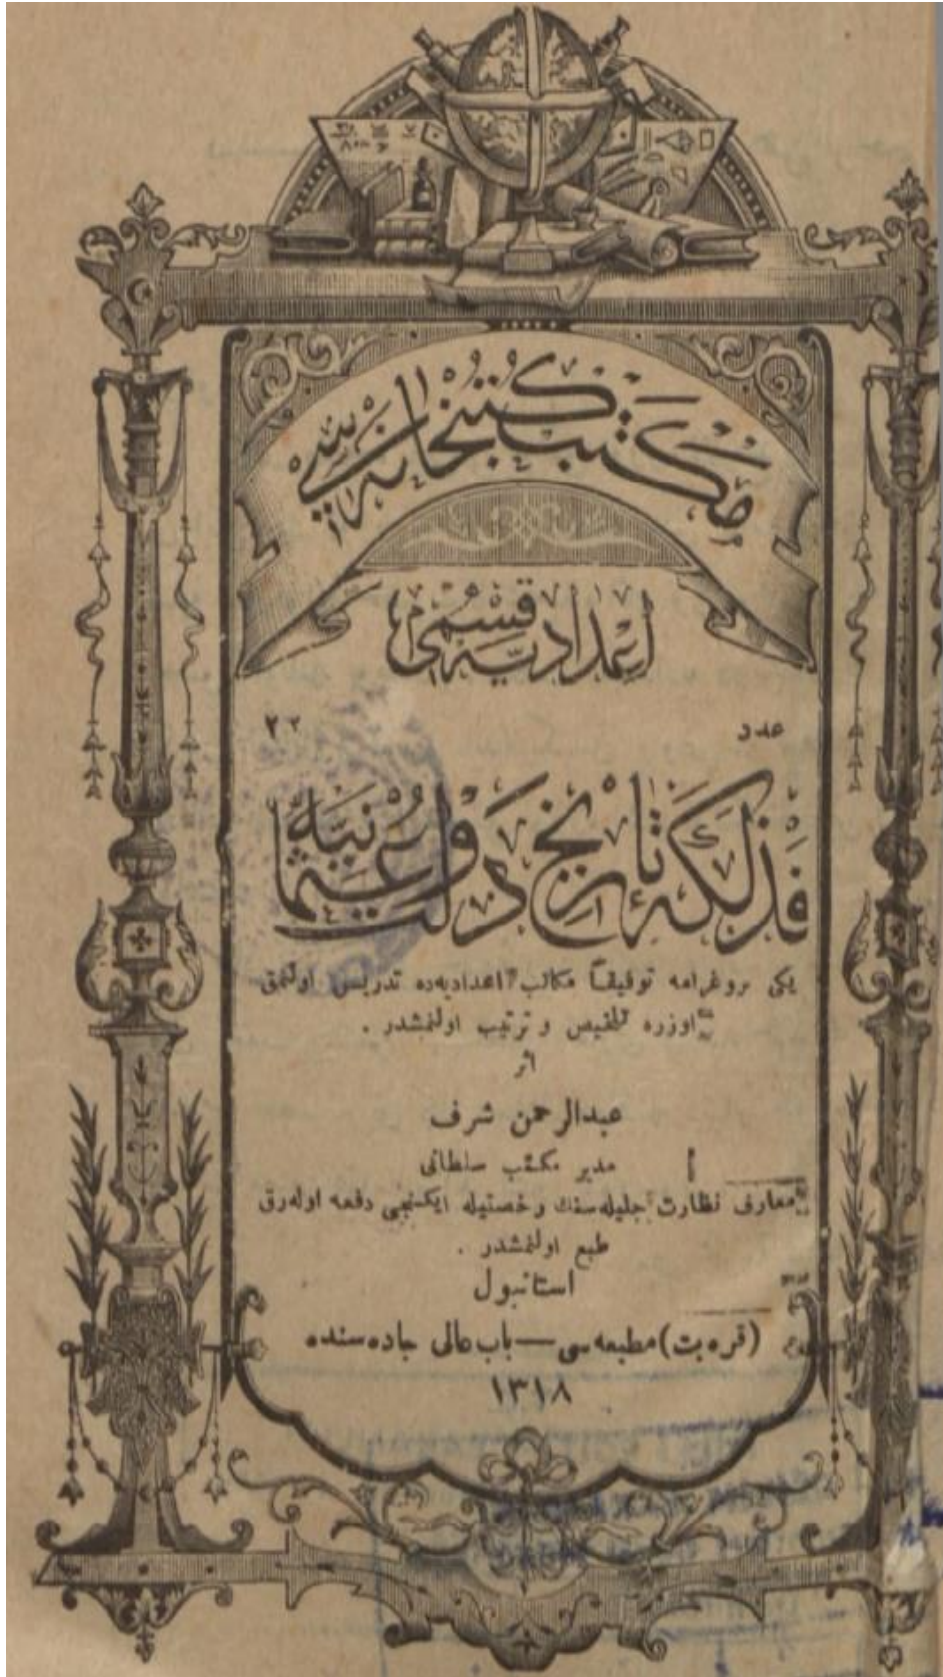 مكتب كتبخانه‌سی
اعدادیه قسمی
عدد ٢٢
فذلكۀ تاریخ دولت عثمانیه
یكی پروغرامه توفیقاً مكاتب اعدادیه‌ده تدریس اولنمق
اوزره تلخیص و ترتیب اولنمشدر .
اثر
عبدالرحمن شرف
مدیر مكتب سلطانی
معارف نظارت جلیله‌سنك رخصتیله ایكنجی دفعه اوله‌رق
طبع اولنمشدر .
استانبول
(قره‌بت) مطبعه‌سی — باب عالی جاده‌سنده
١٣١٨